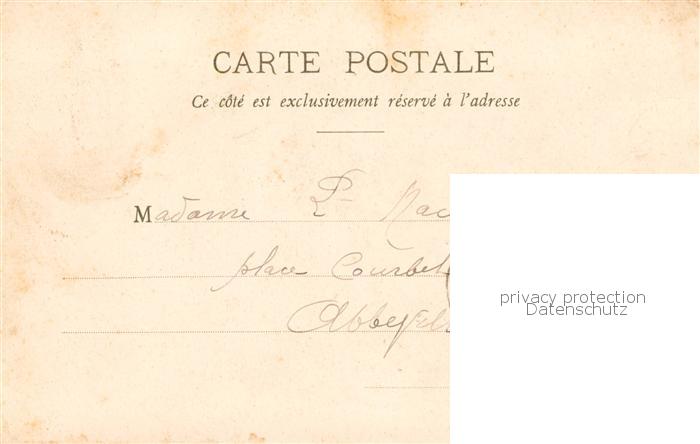 CARTE POSTALE
Ce côté est exclusivement réservé à l'adresse
Madame P.
place Courbet
privacy protection
Datenschutz